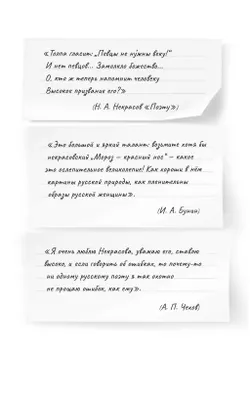 «Толпа гласит: „Певцы не нужны веку!"
И нет певцов... Замолкло божество...
О, кто ж теперь напомнит человеку
Высокое призвание его?»
(Н. А. Некрасов «Поэту»)
«Это большой и яркий талант: возьмите хотя бы
некрасовский „Мороз – красный нос" – какое
это ослепительное великолепие! Как хороши в нём
картины русской природы, как пленительны
образы русской женщины».
(И. А. Бунин)
«Я очень люблю Некрасова, уважаю его, ставлю
высоко, и если говорить об ошибках, то почему-то
ни одному русскому поэту я так охотно
не прощаю ошибок, как ему».
(А. П. Чехов)